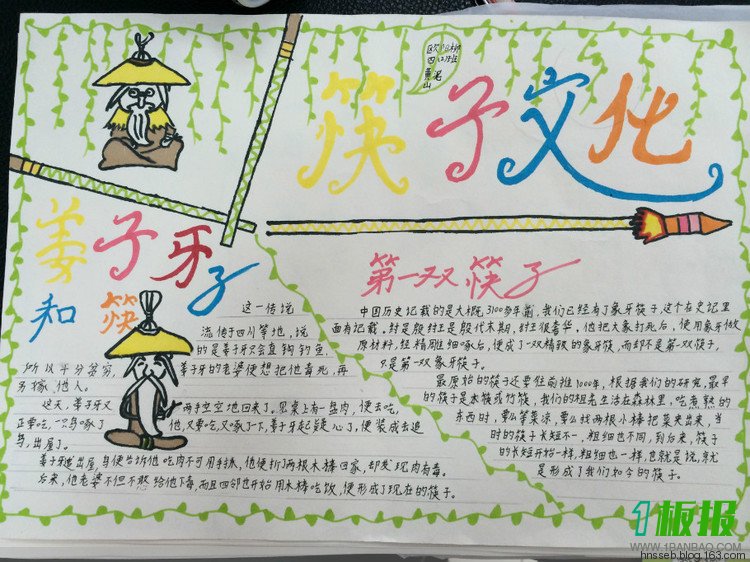 筷子文化
姜子牙
和筷子
这一传说
流传于四川等地,说
的是姜子牙只会直钩钓鱼,
所以十分穷苦,
姜子牙的老婆便想把他毒死,再
另嫁他人。
这天,姜子牙又
两手空空地回来了。见桌上有一盘肉,便去吃,
正要吃,一只鸟啄了
他,又要吃,又啄了一下,姜子牙起疑心了,便装成去追
鸟,出屋了。
姜子牙追出屋,鸟便告诉他吃肉不可用手抓,他便折了两根木棒回家,却发现肉有毒。
后来,他老婆不但不敢给他下毒,而且四邻也开始用木棒吃饭,便形成了现在的筷子。
第一双筷子
中国历史记载的是大概,3100多年前,我们已经有了象牙筷子,这个在史记里
面有记载。纣是殷纣王是殷代末期,纣王很奢华,他把大象打死后,便用象牙做
原材料,经精雕细啄后,便成了一双精致的象牙筷,而却不是第一双筷子,
只是第一双象牙筷子。
最原始的筷子还要往前推1000年,根据我们的研究,最早
的筷子是木筷或竹筷,我们的祖老生活在森林里,吃着熟的
东西时,要么等菜凉,要么找两根小棒把菜夹出来,当
时的筷子长短不一,粗细也不同,到后来,筷子
的长短开始一样,粗细也一样,也就是说,就
是形成了我们如今的筷子。
1板报
WWW.1BANBAO.COM
hnsseb.blog.163.com